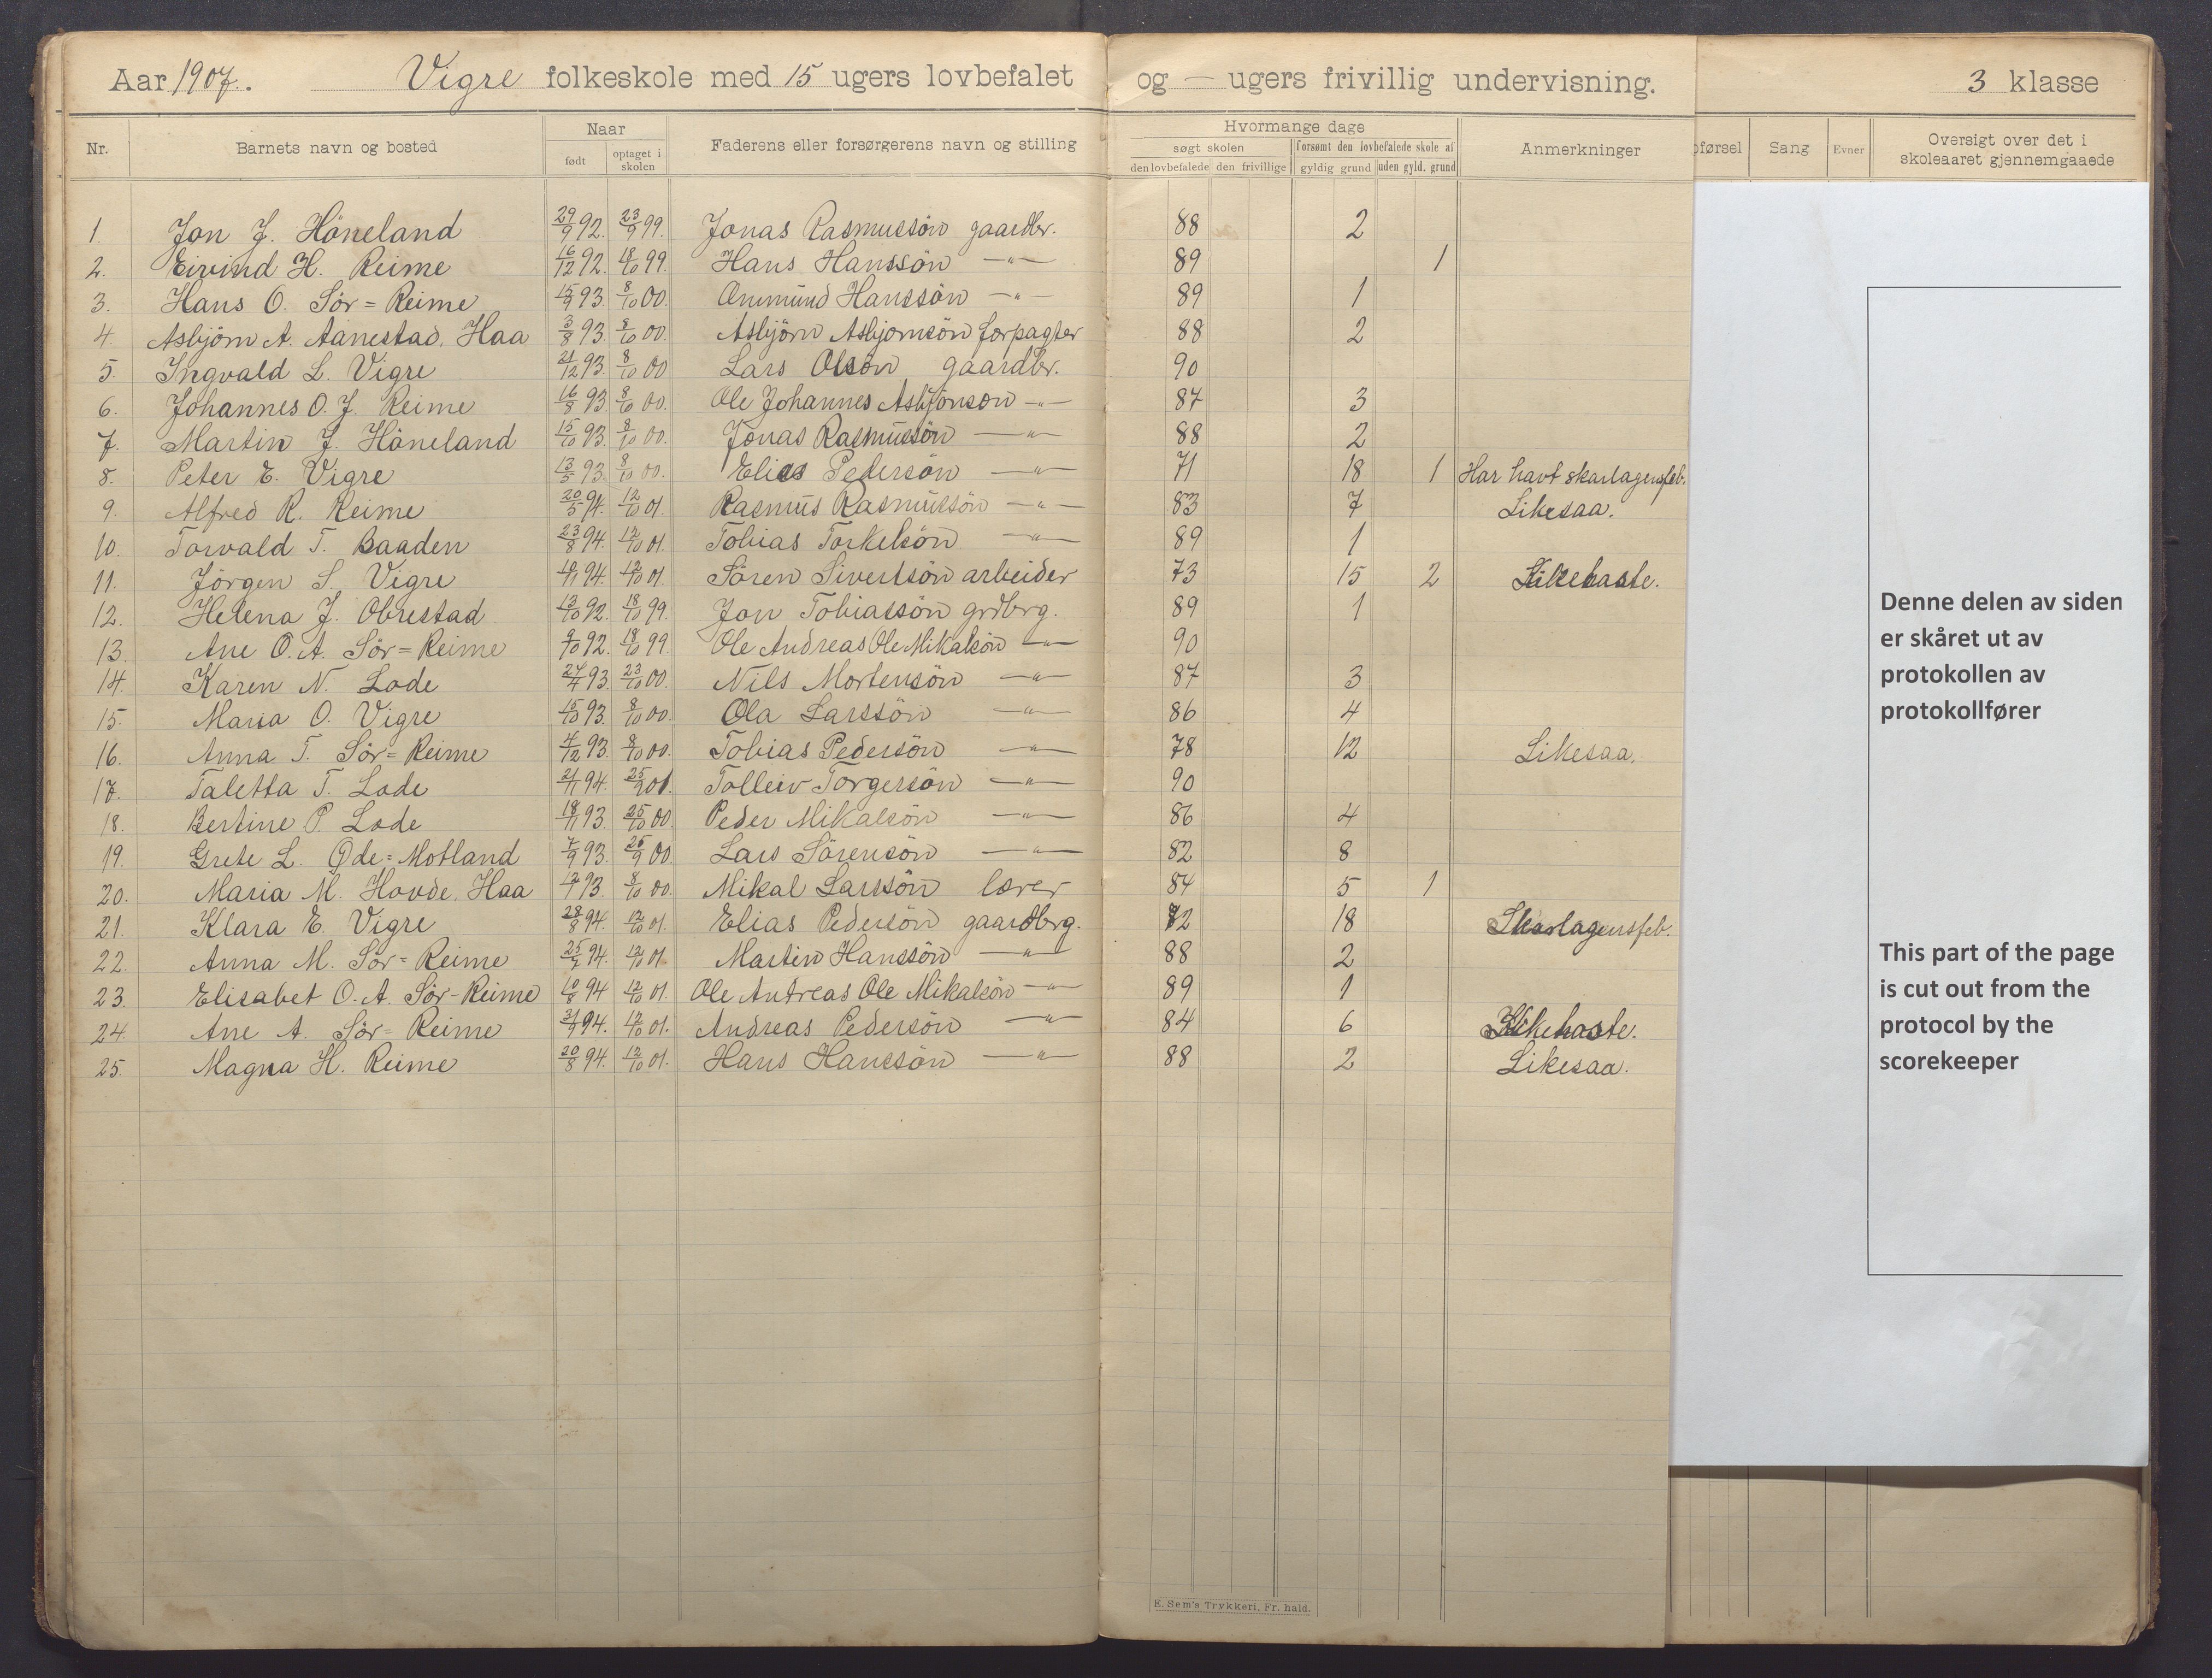 Aar 1907. Vigre folkeskole med 15 ugers lovbefalet og — ugers frivillig undervisning. 3 klasse
Nr. Barnets navn og bosted Naar født optaget i skolen Faderens eller forsørgerens navn og stilling Hvormange dage søgt skolen den lovbefalede den frivillige forsømt den lovbefalede skole af gyldig grund uden gyld. grund Anmerkninger førsel Sang Evner Oversigt over det i skoleaaret gjennemgaaede
1. Jon J. Höneland 29/9 92. 23/9 99. Jonas Rasmussön gaardbr. 88 2
2. Eivind H. Reime 16/12 92. 18/10 99. Hans Hanssön —"— 89 1
3. Hans O. Sör=Reime 15/9 93. 8/10 00. Ommund Hanssön —"— 89 1
4. Asbjörn A. Aanestad, Haa 3/8 93. 8/10 00. Asbjörn Asbjornsön forpagter 88 2
5. Ingvald L. Vigre 21/12 93. 8/10 00 Lars Olsön gaardbr. 90
6. Johannes O. J. Reime 16/8 93. 8/10 00. Ole Johannes Asbjönson —"— 87 3
7. Martin J. Höneland 15/10 93. 8/10 00. Jonas Rasmussön —"— 88 2
8. Peter E. Vigre 13/5 93. 8/10 00. Elias Pedersön —"— 71 18 1 Har havt skarlagensfeb.
9. Alfred R. Reime 20/5 94. 12/10 01. Rasmus Rasmussön —"— 83 7 Likesaa.
10. Torvald T. Baaden 23/8 94. 12/10 01. Tobias Torkelsön —"— 89 1
11. Jörgen S. Vigre 94. 12/10 01. Sören Sivertsön arbeider 73 15 2 Kikehoste.
12. Helena J. Obrestad 13/10 92. 18/10 99. Jon Tobiassön grdbrg. 89 1
13. Ane O. A. Sör=Reime 9/10 92. 18/10 99 Ole Andreas Ole Mikalsön —"— 90
14. Karen N. Lode 27/4 93. 23/10 00. Nils Mortensön —"— 87 3
15. Maria O. Vigre 15/10 93. 8/10 00. Ola Larssön —"— 86 4
16. Anna T. Sör=Reime 4/12 93. 8/10 00. Tobias Pedersön —"— 78 12 Likesaa.
17. Taletta T. Lode 21/11 94. 25/9 01. Tolleiv Torgersön —"— 90
18. Bertine P. Lode 18/11 93. 25/10 00. Peder Mikalsön —"— 86 4
19. Grete L. Øde=Motland 7/9 93. 26/9 00. Lars Sörensön —"— 82 8
20. Maria M. Hovde, Haa 93. 8/10 00. Mikal Larssön lærer 84 5 1
21. Klara E. Vigre 28/8 94. 12/10 01. Elias Pedersön gaardbrg. 72 18 Skarlagensfeb.
22. Anna M. Sör=Reime 94. 12/10 01 Martin Hanssön —"— 88 2
23. Elisabet O. A. Sör-Reime 10/8 94 12/10 01. Ole Andreas Ole Mikalsön —"— 89 1
24. Ane A. Sör=Reime 94. 12/10 01. Andreas Pedersön —"— 84 6 Kikehoste.
25. Magna H. Reime 20/8 94. 12/10 01. Hans Hanssön —"— 88 2 Likesaa.
Denne delen av siden
er skåret ut av
protokollen av
protokollfører
This part of the page
is cut out from the
protocol by the
scorekeeper
E. Sem's Trykkeri, Fr. hald.